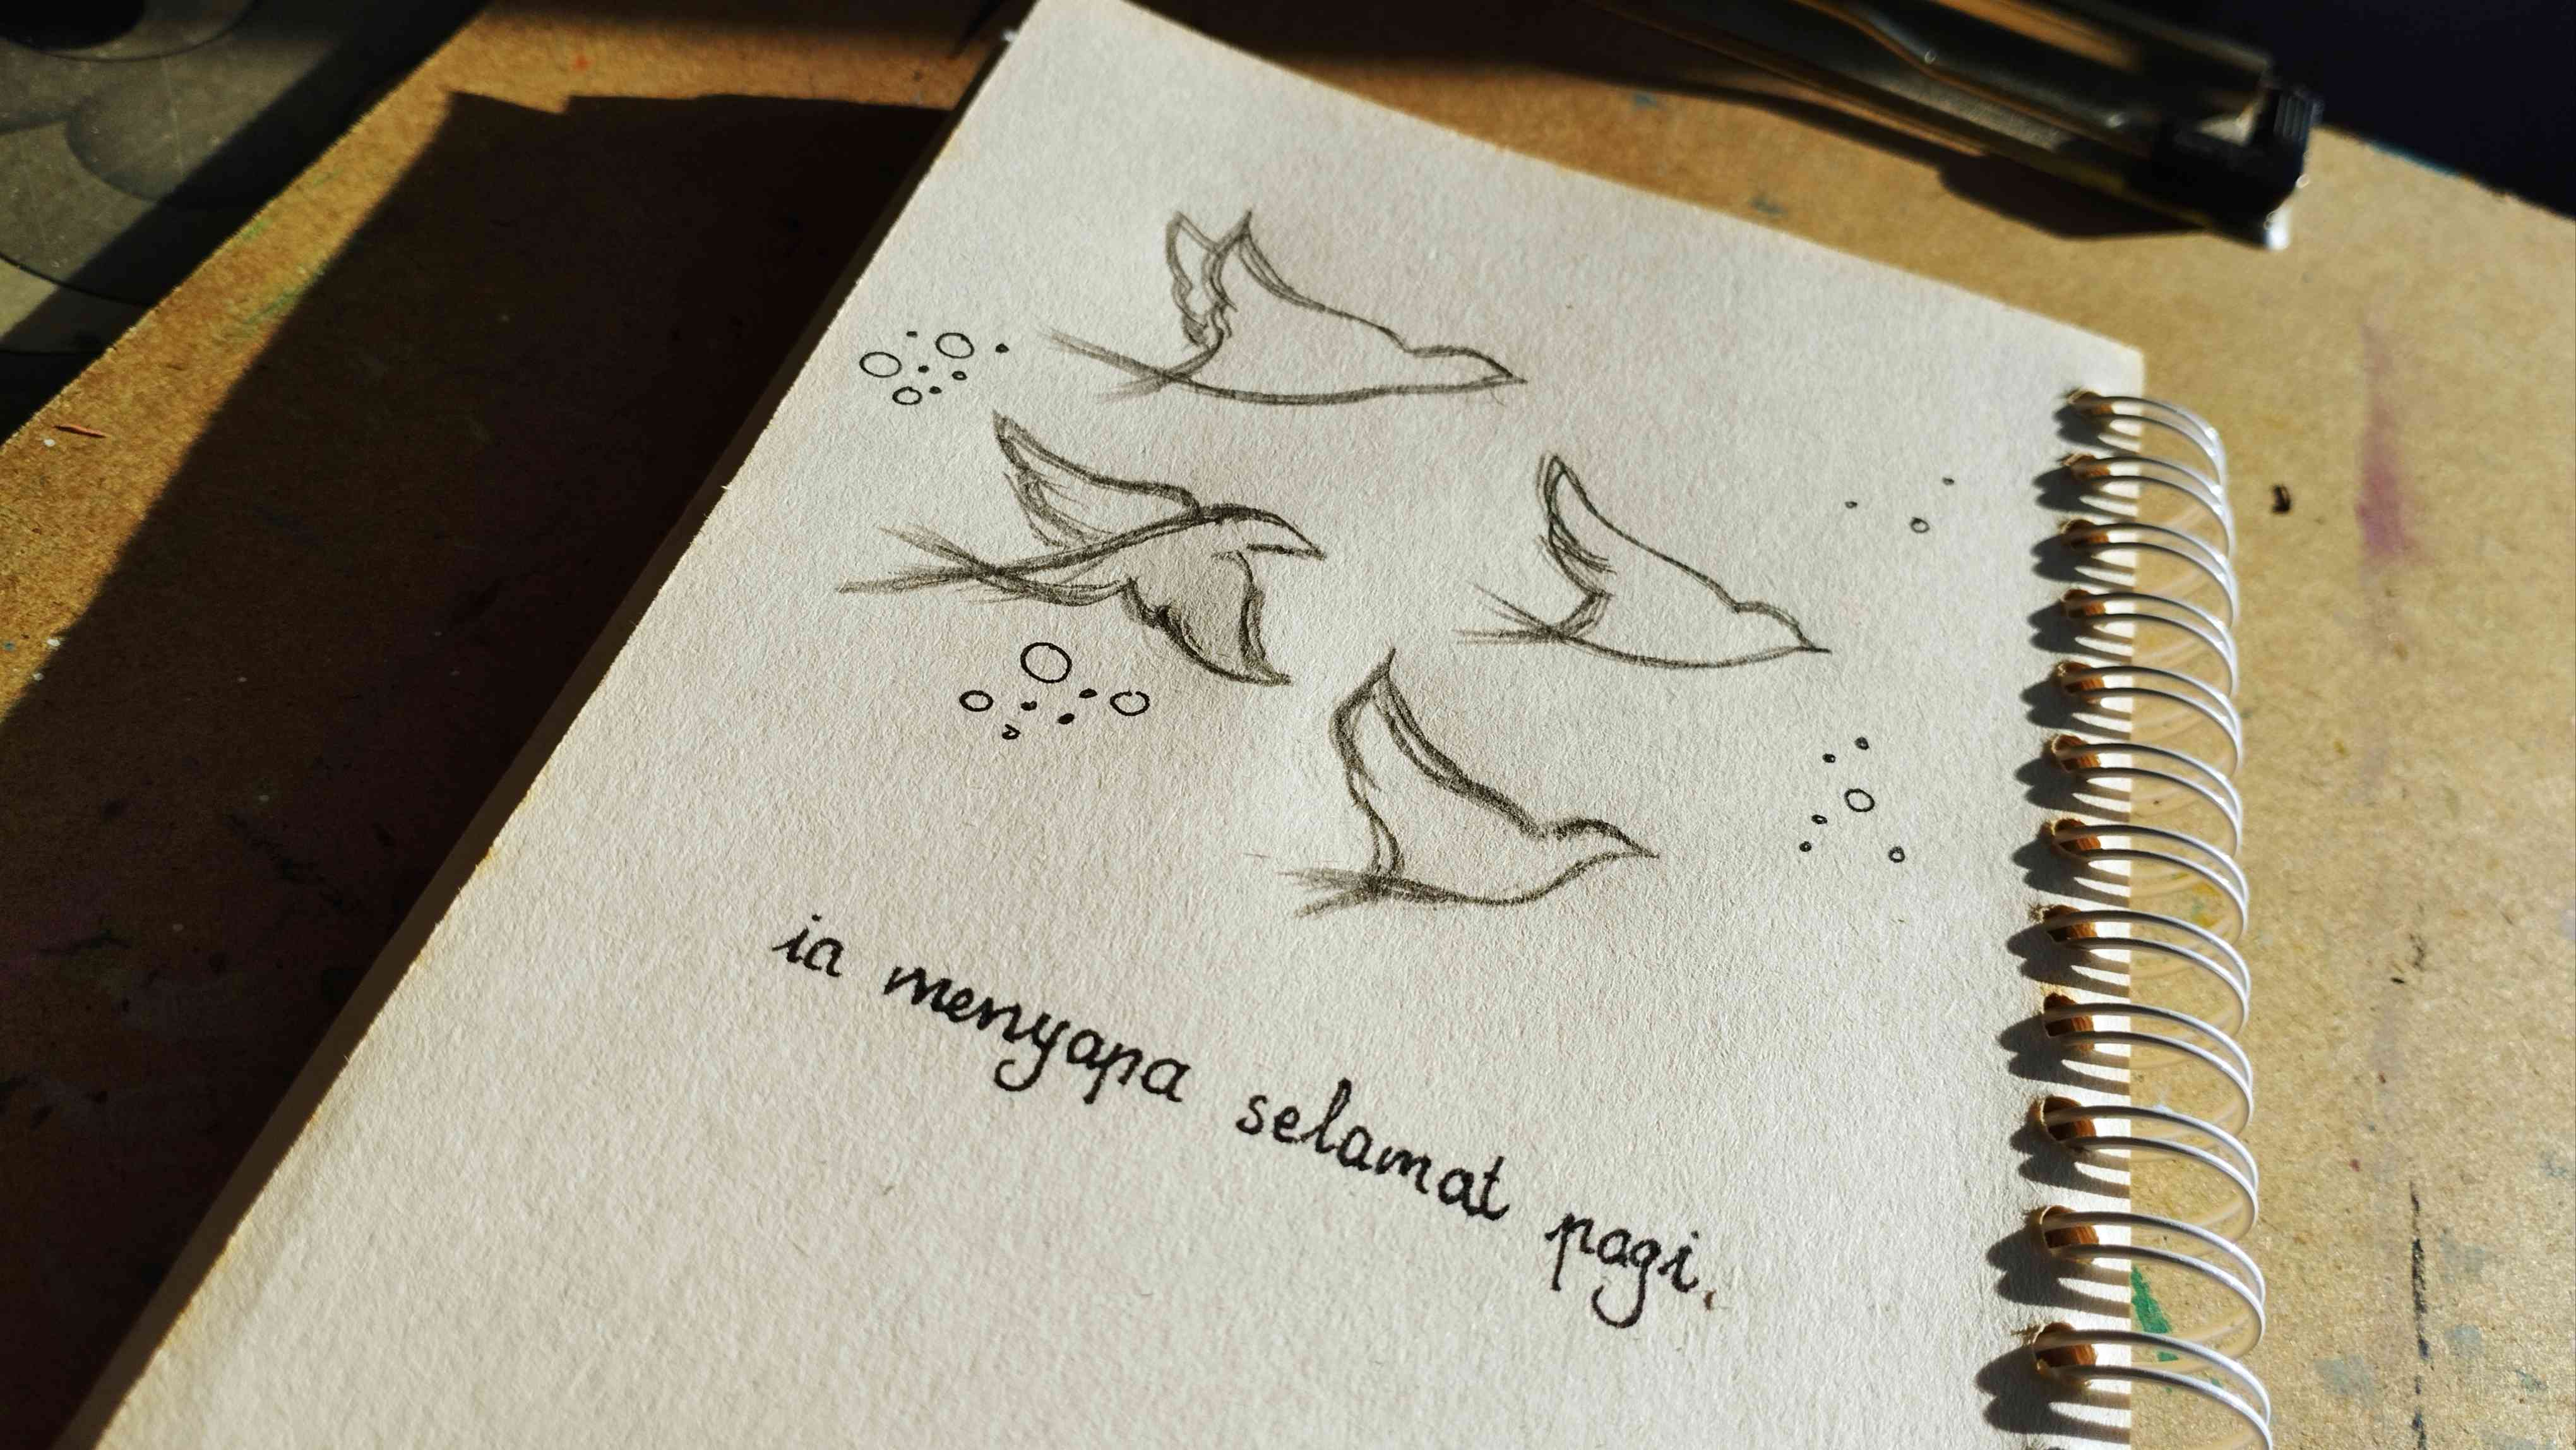 ia menyapa selamat pagi.